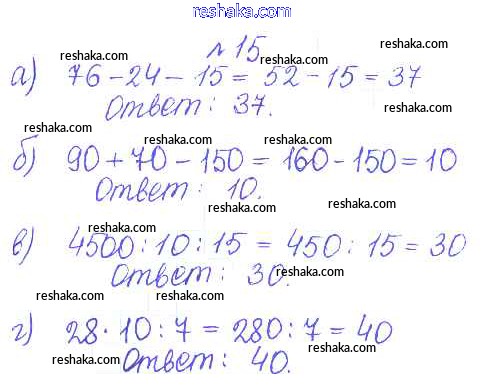 reshaka.com
№ 15
reshaka.com reshaka.com
а) 76 - 24 - 15 = 52 - 15 = 37
Ответ: 37.
reshaka.com
reshaka.com
reshaka.com reshaka.com
б) 90 + 70 - 150 = 160 - 150 = 10
Ответ: 10.
reshaka.com
reshaka.com
reshaka.com
reshaka.com
в) 4500 : 10 : 15 = 450 : 15 = 30
Ответ: 30.
reshaka.com
reshaka.com
reshaka.com
г) 28 · 10 : 7 = 280 : 7 = 40
Ответ: 40.
reshaka.com
reshaka.com